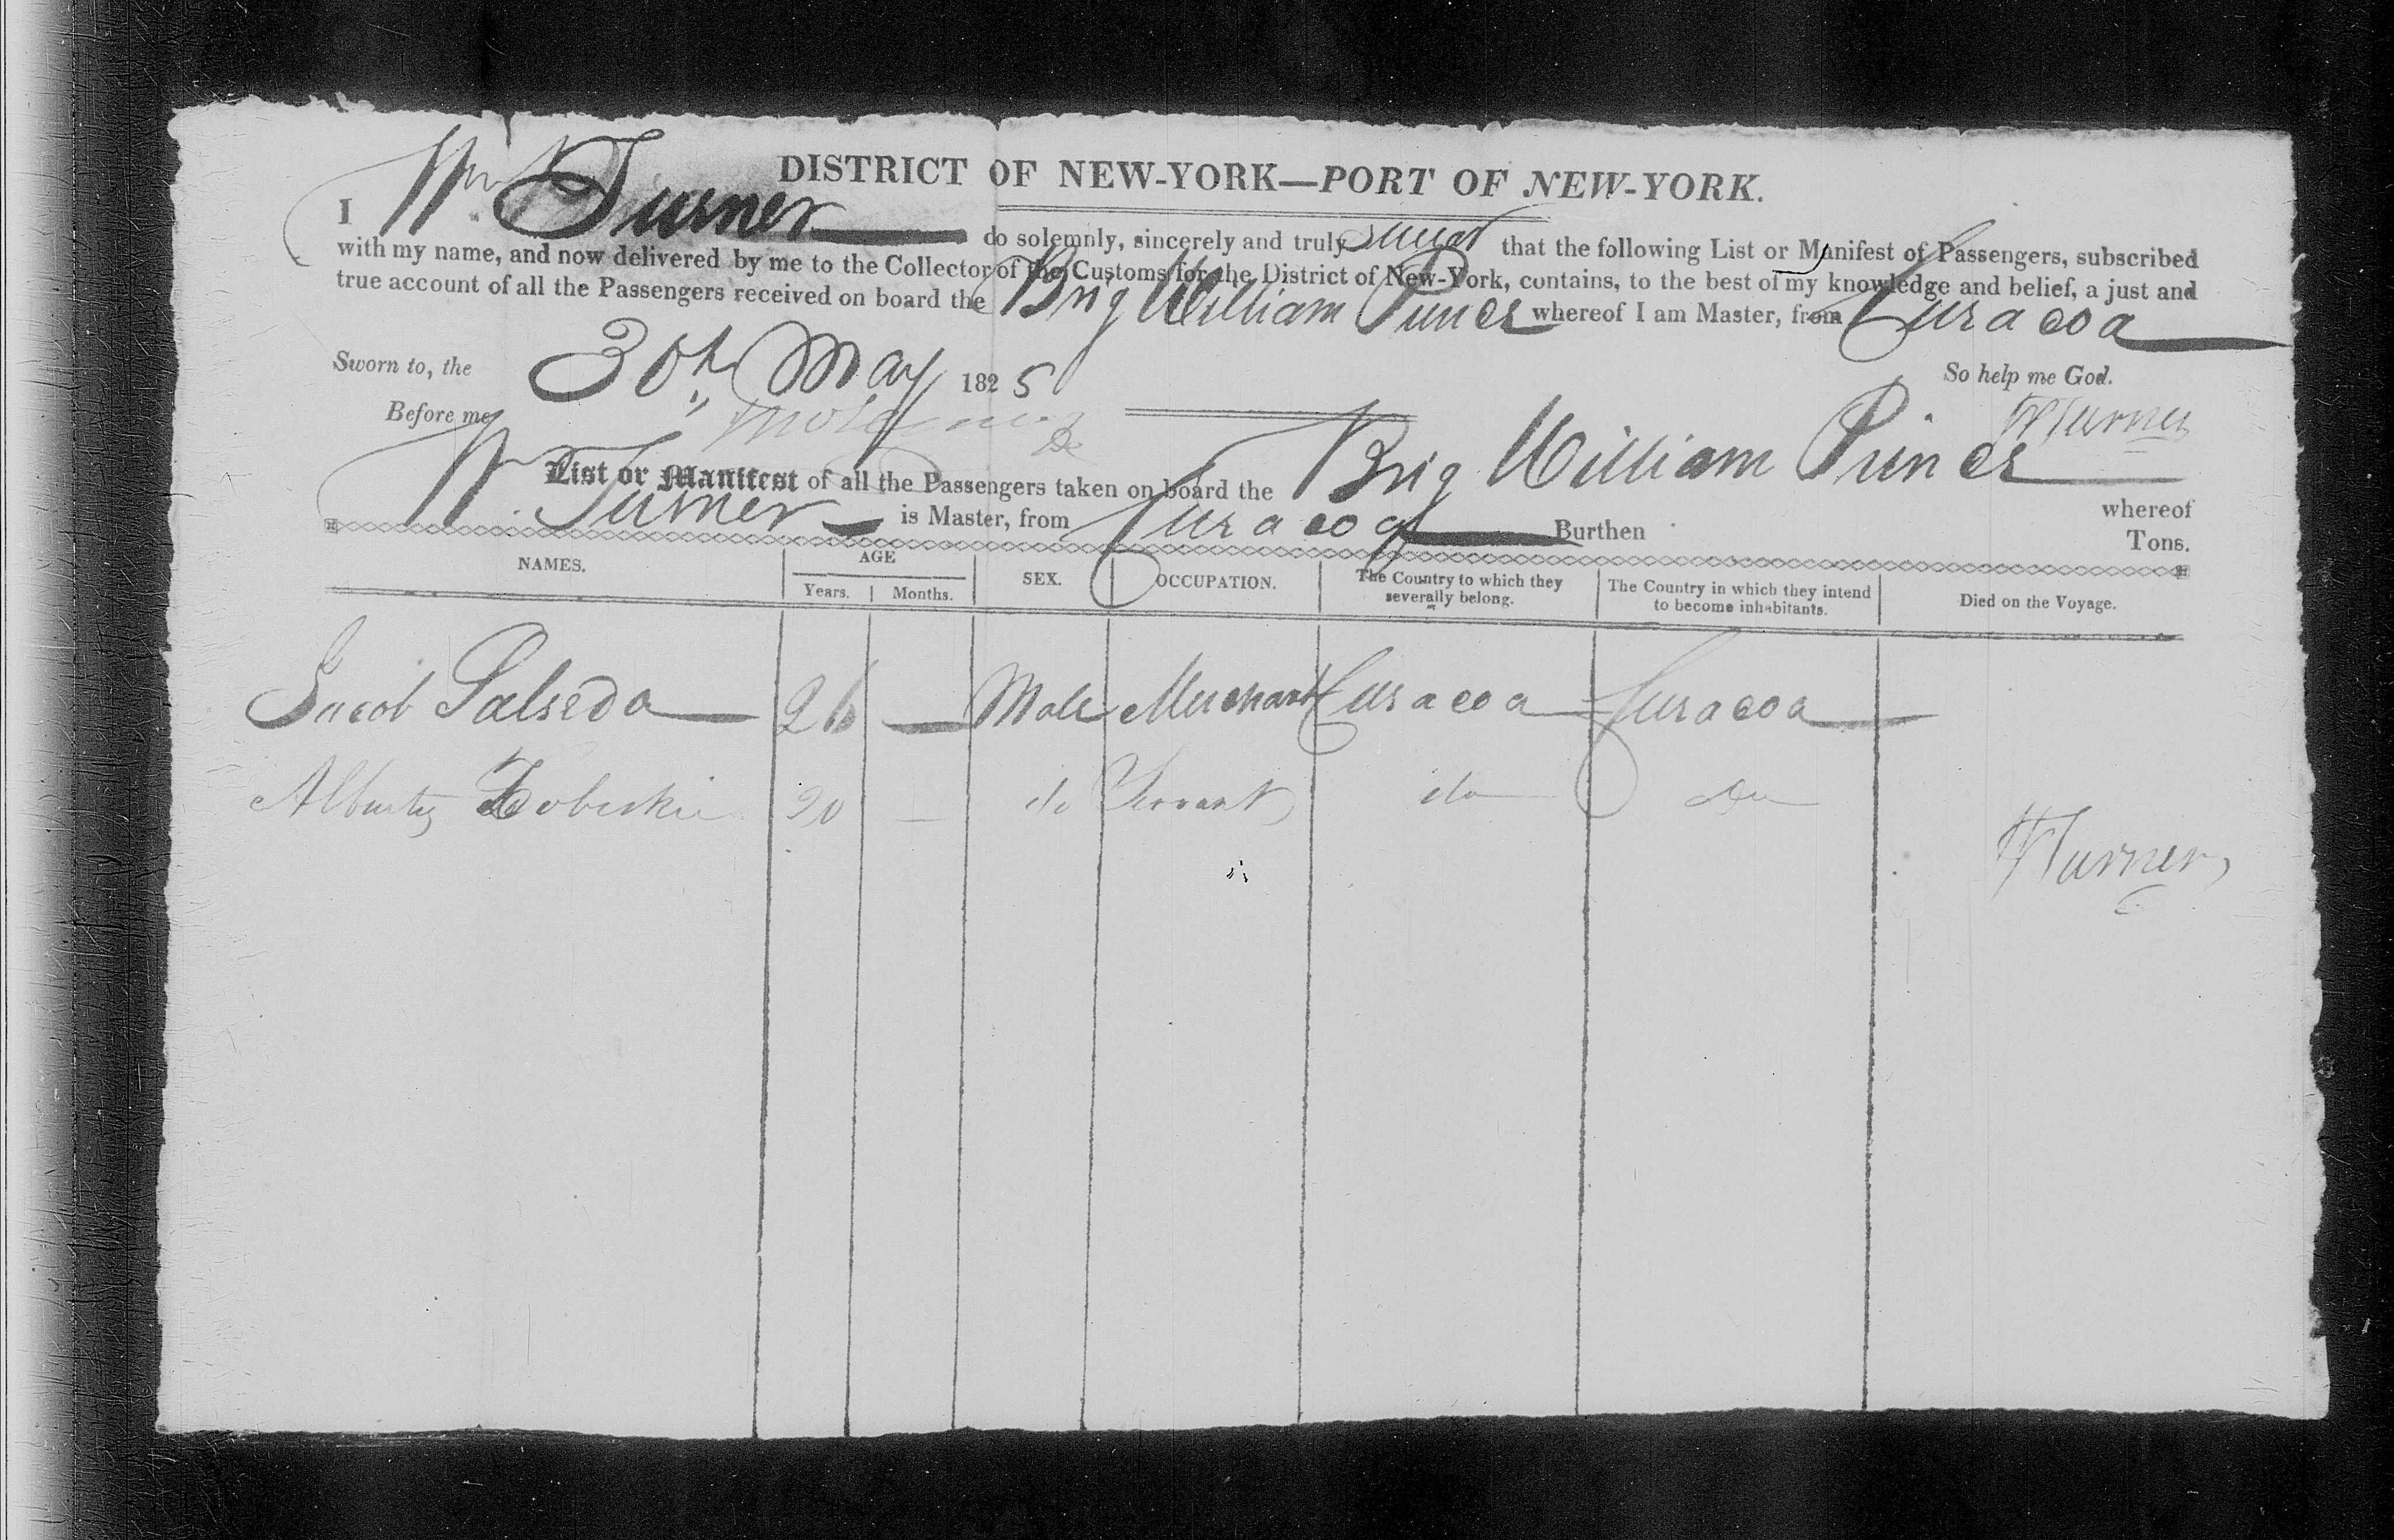 DISTRICT OF NEW-YORK—PORT OF NEW-YORK.
I Wm Turner do solemnly, sincerely and truly swear that the following List or Manifest of Passengers, subscribed
with my name, and now delivered by me to the Collector of the Customs for the District of New-York, contains, to the best of my knowledge and belief, a just and
true account of all the Passengers received on board the Brig William whereof I am Master, from Curacoa
Sworn to, the 30th May 1825 So help me God.
Before me WTurner
List or Manifest of all the Passengers taken on board the Brig William whereof
W. Turner is Master, from Curacoa Burthen Tons.
NAMES. AGE Years. Months. SEX. OCCUPATION. The Country to which they severally belong. The Country in which they intend to become inhabitants. Died on the Voyage.
Jacob Salseda 26 — Male Merchant Curacoa Curacoa
20 — do Servant do do
WTurner